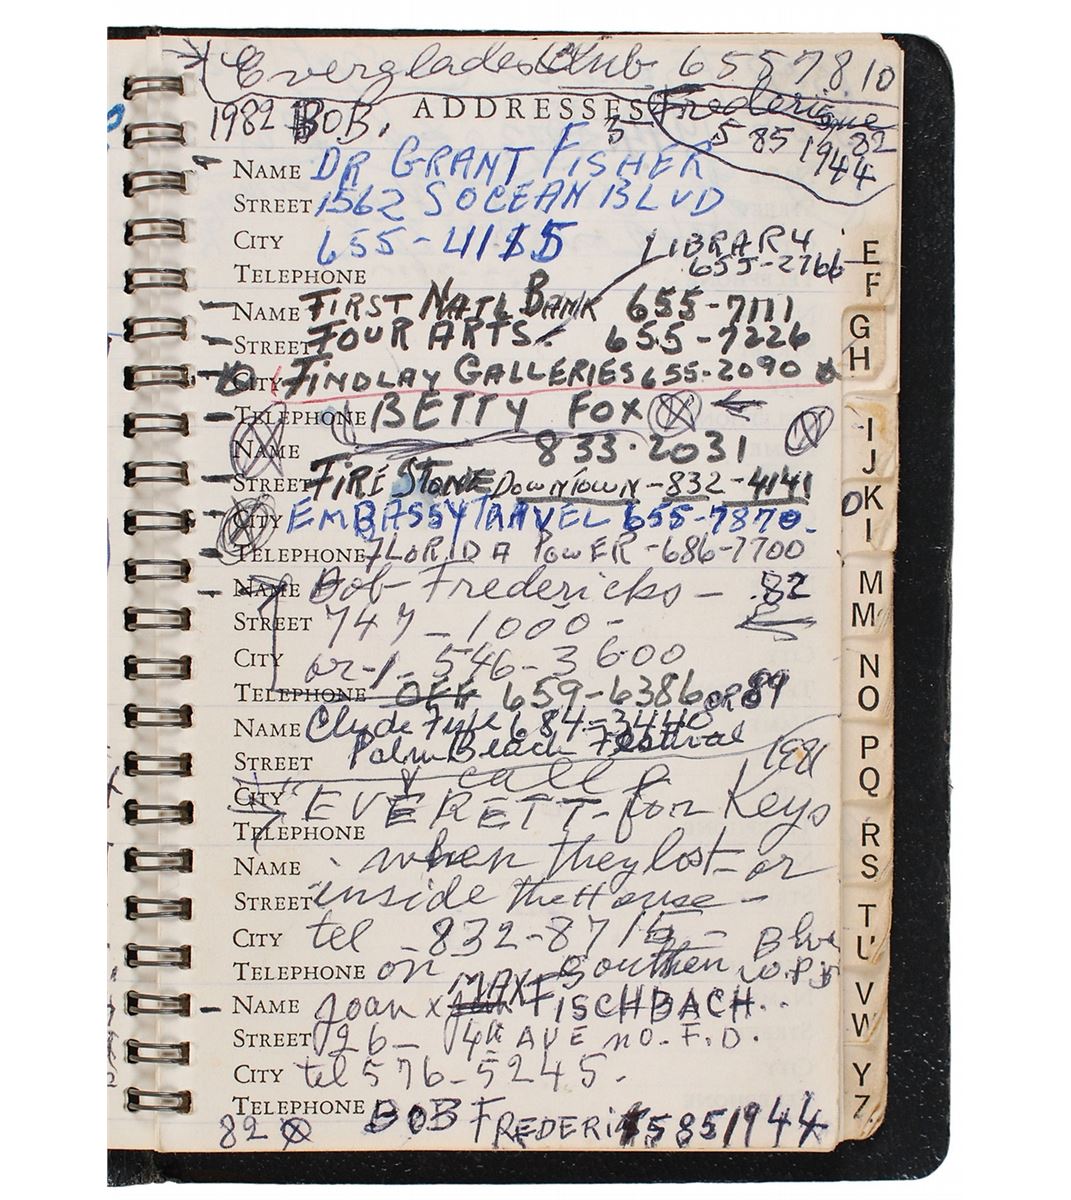 Everglades Club 655 7810
ADDRESSES
1982 BOB. 3 585 1944 82
NAME DR GRANT FISHER
STREET 1562 S OCEAN BLVD
CITY 655-4155
LIBRARY
655-2766
TELEPHONE
NAME FIRST NATL BANK 655-7111
STREET FOUR ARTS. 655-7226
CITY FINDLAY GALLERIES 655-2090
TELEPHONE BETTY FOX
NAME 833-2031
STREET FIRESTONE DOWNTOWN-832-4141
CITY EMBASSY TRAVEL 655-7870.
TELEPHONE FLORIDA POWER-686-7700
NAME Bob Fredericks - 82
STREET 747-1000-
CITY or-1-546-3600
TELEPHONE OFF 659-6386 OR 89
NAME Clyde Fyfe 684-3440
Palm Beach Festival
STREET
call
CITY EVERETT-for Keys
TELEPHONE
NAME when they lost-or
STREET inside the House-
CITY tel-832-8715-
TELEPHONE on Southern Blve
W.P.B
NAME Joan x MAX FISCHBACH..
STREET 926-14th AVE no. F.D.
CITY tel 576-5245.
TELEPHONE BOB FREDERI 5851944
82
E
F
G
H
I
J
K
M
N
O
P
Q
R
S
T
U
V
W
Y
Z